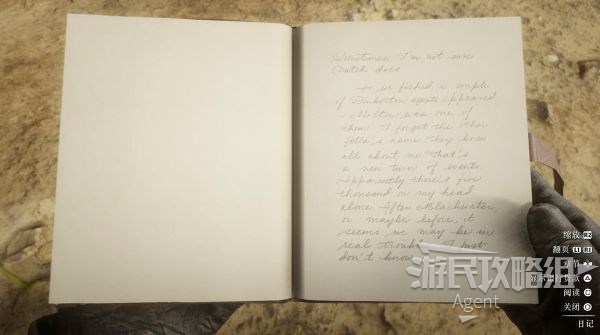 Sometimes I'm not sure
Dutch does
As we fished, a couple
of Pinkerton agents appeared
— Milton, was one of
them. I forget the other
fella's name, they knew
all about me. That's
a new turn of events.
Apparently there's five
thousand on my head
alone. After Blackwater,
or maybe before, it
seems we may be in
real trouble. I just
don't know
缩放 R2
翻页 L1 R1
章节
显示 款
阅读
关闭
日记
游民攻略组
Agent